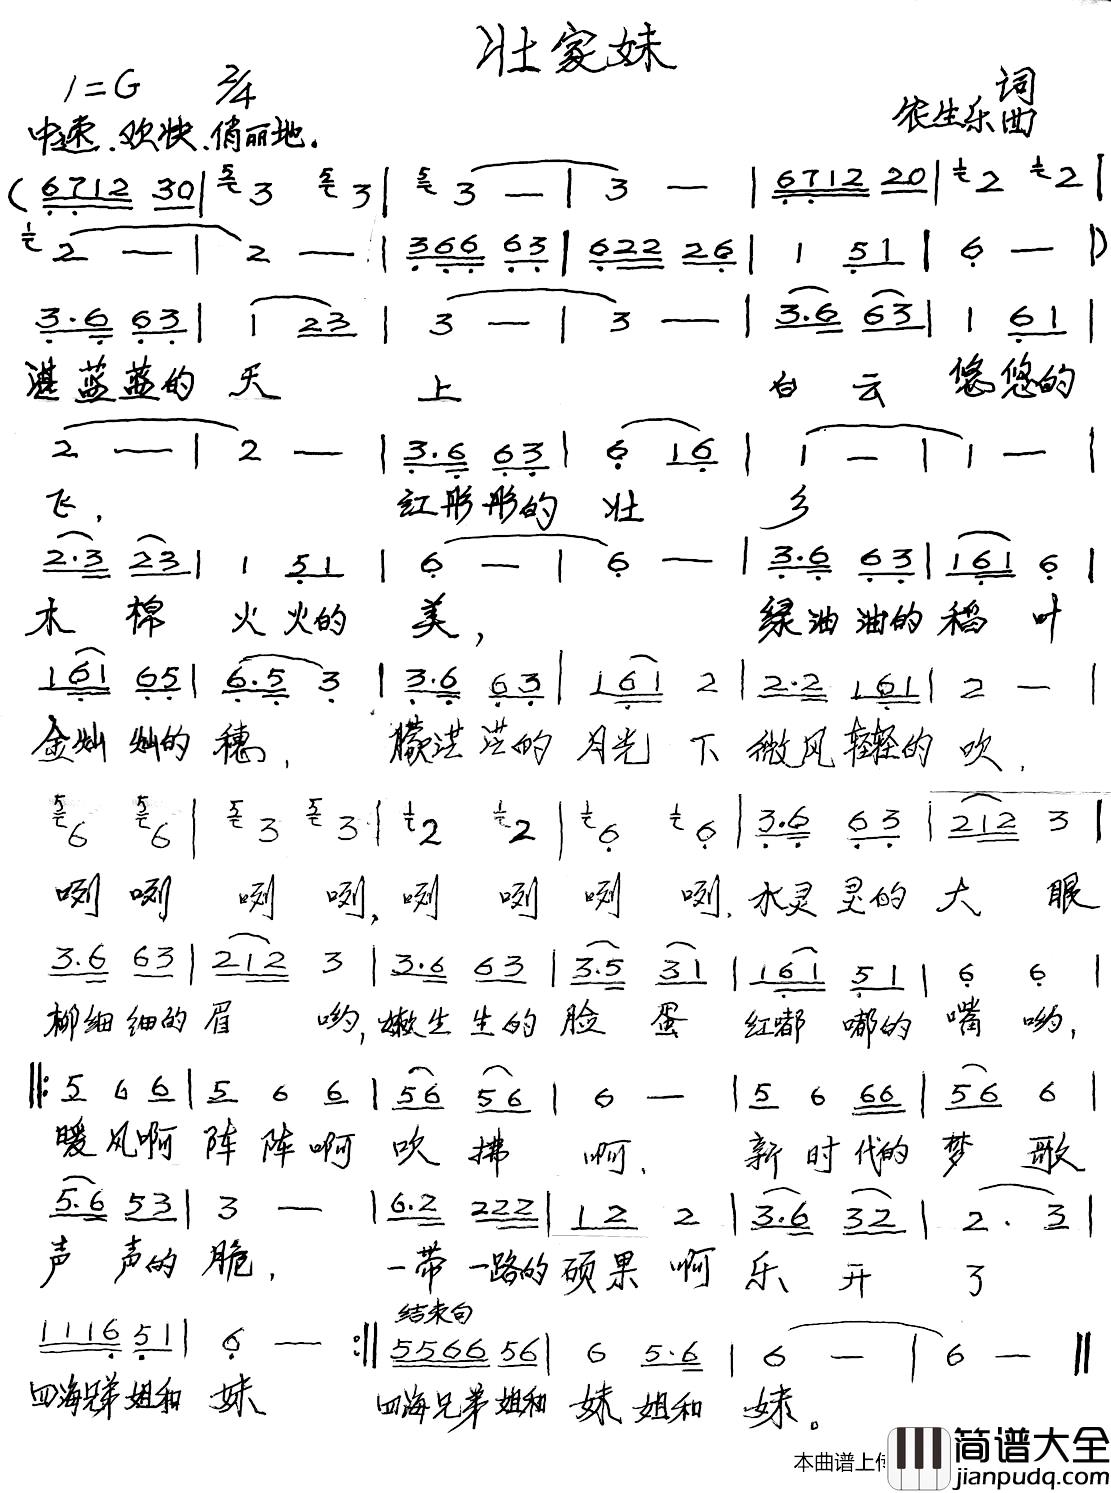 壮家妹
1=G 2/4 词
农生乐 曲
中速、欢快、俏丽地。
( 6712 30 | 5 3 5 3 | 5 3 — | 3 — | 6712 20 | 1 2 1 2 |
1 2 — | 2 — | 366 63 | 622 26 | 1 51 | 6 — | )
3·6 63 | 1 23 | 3 — | 3 — | 3·6 63 | 1 61 |
湛蓝蓝的天 上 白云 悠悠的
2 — | 2 — | 3·6 63 | 6 16 | 1 — | 1 — |
飞, 红彤彤的 壮 乡
2·3 23 | 1 51 | 6 — | 6 — | 3·6 63 | 161 6 |
木棉 火火的 美, 绿油油的稻叶
161 65 | 6·5 3 | 3·6 63 | 161 2 | 2·2 161 | 2 — |
金灿灿的穗, 朦洪洪的月光下 微风轻轻的吹,
5 6 5 6 | 5 3 5 3 | 1 2 1 2 | 1 6 1 6 | 3·6 63 | 212 3 |
咧咧 咧咧, 咧咧咧咧, 水灵灵的大眼
3·6 63 | 212 3 | 3·6 63 | 3·5 31 | 161 51 | 6 6 |
柳细细的眉 哟, 嫩生生的脸蛋 红嘟嘟的嘴哟,
‖: 5 6 6 | 5 6 6 | 56 56 | 6 — | 5 6 66 | 56 6 |
暖风啊 阵阵啊 吹拂 啊, 新时代的梦歌
5·6 53 | 3 — | 6·2 222 | 12 2 | 3·6 32 | 2· 3 |
声声的脆, 一带一路的硕果啊 乐开了
结束句
1116 51 | 6 — :‖ 5566 56 | 6 5·6 | 6 — | 6 — ‖
四海兄弟姐和妹 四海兄弟姐和妹姐和妹。
本曲谱上传
简谱大全
jianpudq.com